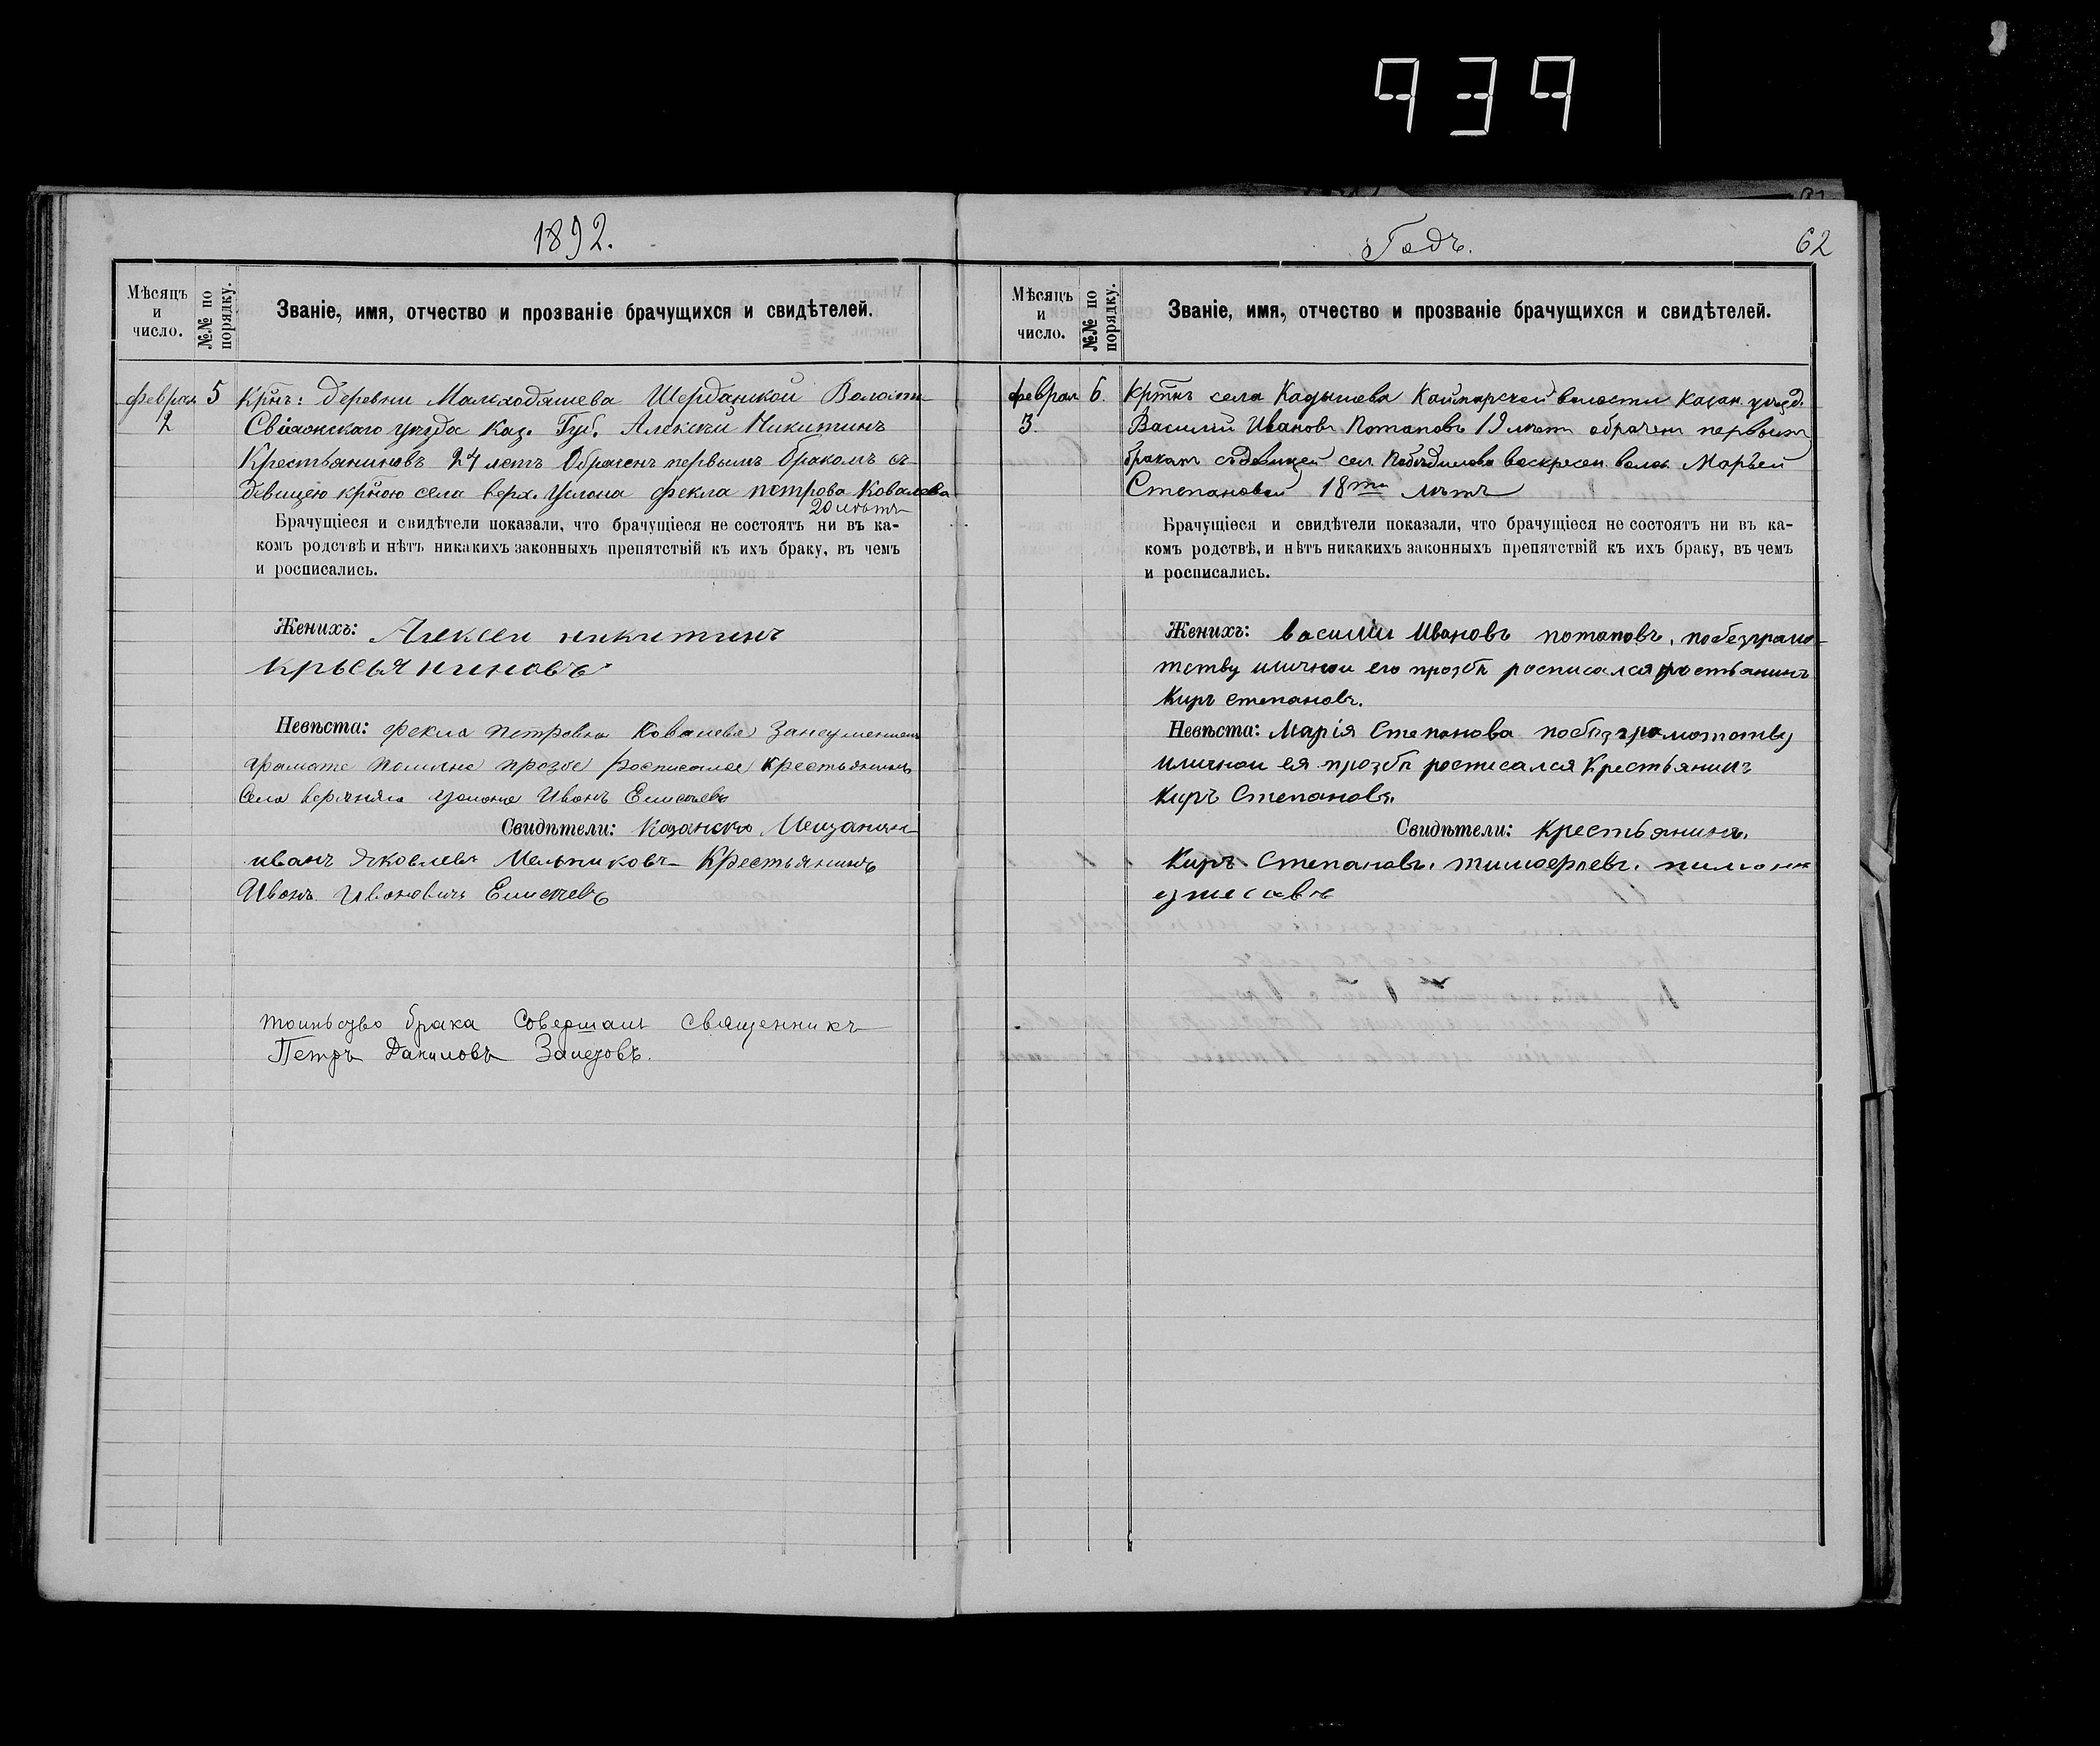 939
1892.
Мѣсяцъ и число.
№№ по порядку.
Званіе, имя, отчество и прозваніе брачущихся и свидѣтелей.
феврал 2
5
Крнъ: деревни Мальходяшева Шерданской Волости
Свіяжскаго уѣзда Каз. Губ. Алексѣй Никитинъ
Крестьяниновъ 24 летъ Обраченъ первымъ бракомъ съ
девицею крною села верх. Услона Фекла петрова Ковалева
20 лѣтъ
Брачущіеся и свидѣтели показали, что брачущіеся не состоятъ ни въ ка-
комъ родствѣ и нѣтъ никакихъ законныхъ препятствій къ ихъ браку, въ чемъ
и росписались.
Женихъ: Алексеи никитинъ
крьсьяниновъ
Невѣста: Фекла Петровна Ковалева
грамоте прозбе росписался крестьянинъ
Села верхняго услона Иванъ Елисеевъ
Свидѣтели: Казанскю Мещанин
иванъ Яковлевъ Мельниковъ Крестьянинъ
Иванъ Ивановичъ Елисеевъ
брака Совершалъ священникъ
Петръ Даниловъ
Годъ.
62
Мѣсяцъ и число.
№№ по порядку.
Званіе, имя, отчество и прозваніе брачущихся и свидѣтелей.
феврал 3.
6.
Кртнъ села Кадышева Каймарской волости Казан. уѣзд.
Василий Ивановъ Потаповъ 19 лѣтъ обрачен первым
браком съдевицей сел. Побѣдилова воскресен. волос. Марьей
Степановой 18ти лѣтъ
Брачущіеся и свидѣтели показали, что брачущіеся не состоятъ ни въ ка-
комъ родствѣ, и нѣтъ никакихъ законныхъ препятствій къ ихъ браку, въ чемъ
и росписались.
Женихъ: василіи Ивановъ потаповъ, побезграмо-
тству иличнои его прозбѣ росписался
Киръ степановъ.
Невѣста: Марія Степанова
иличнои ея прозбѣ росписался Крестьянинъ
Киръ Степановъ.
Свидѣтели: крестьянинъ.
Киръ Степановъ. тимоѳеевъ.